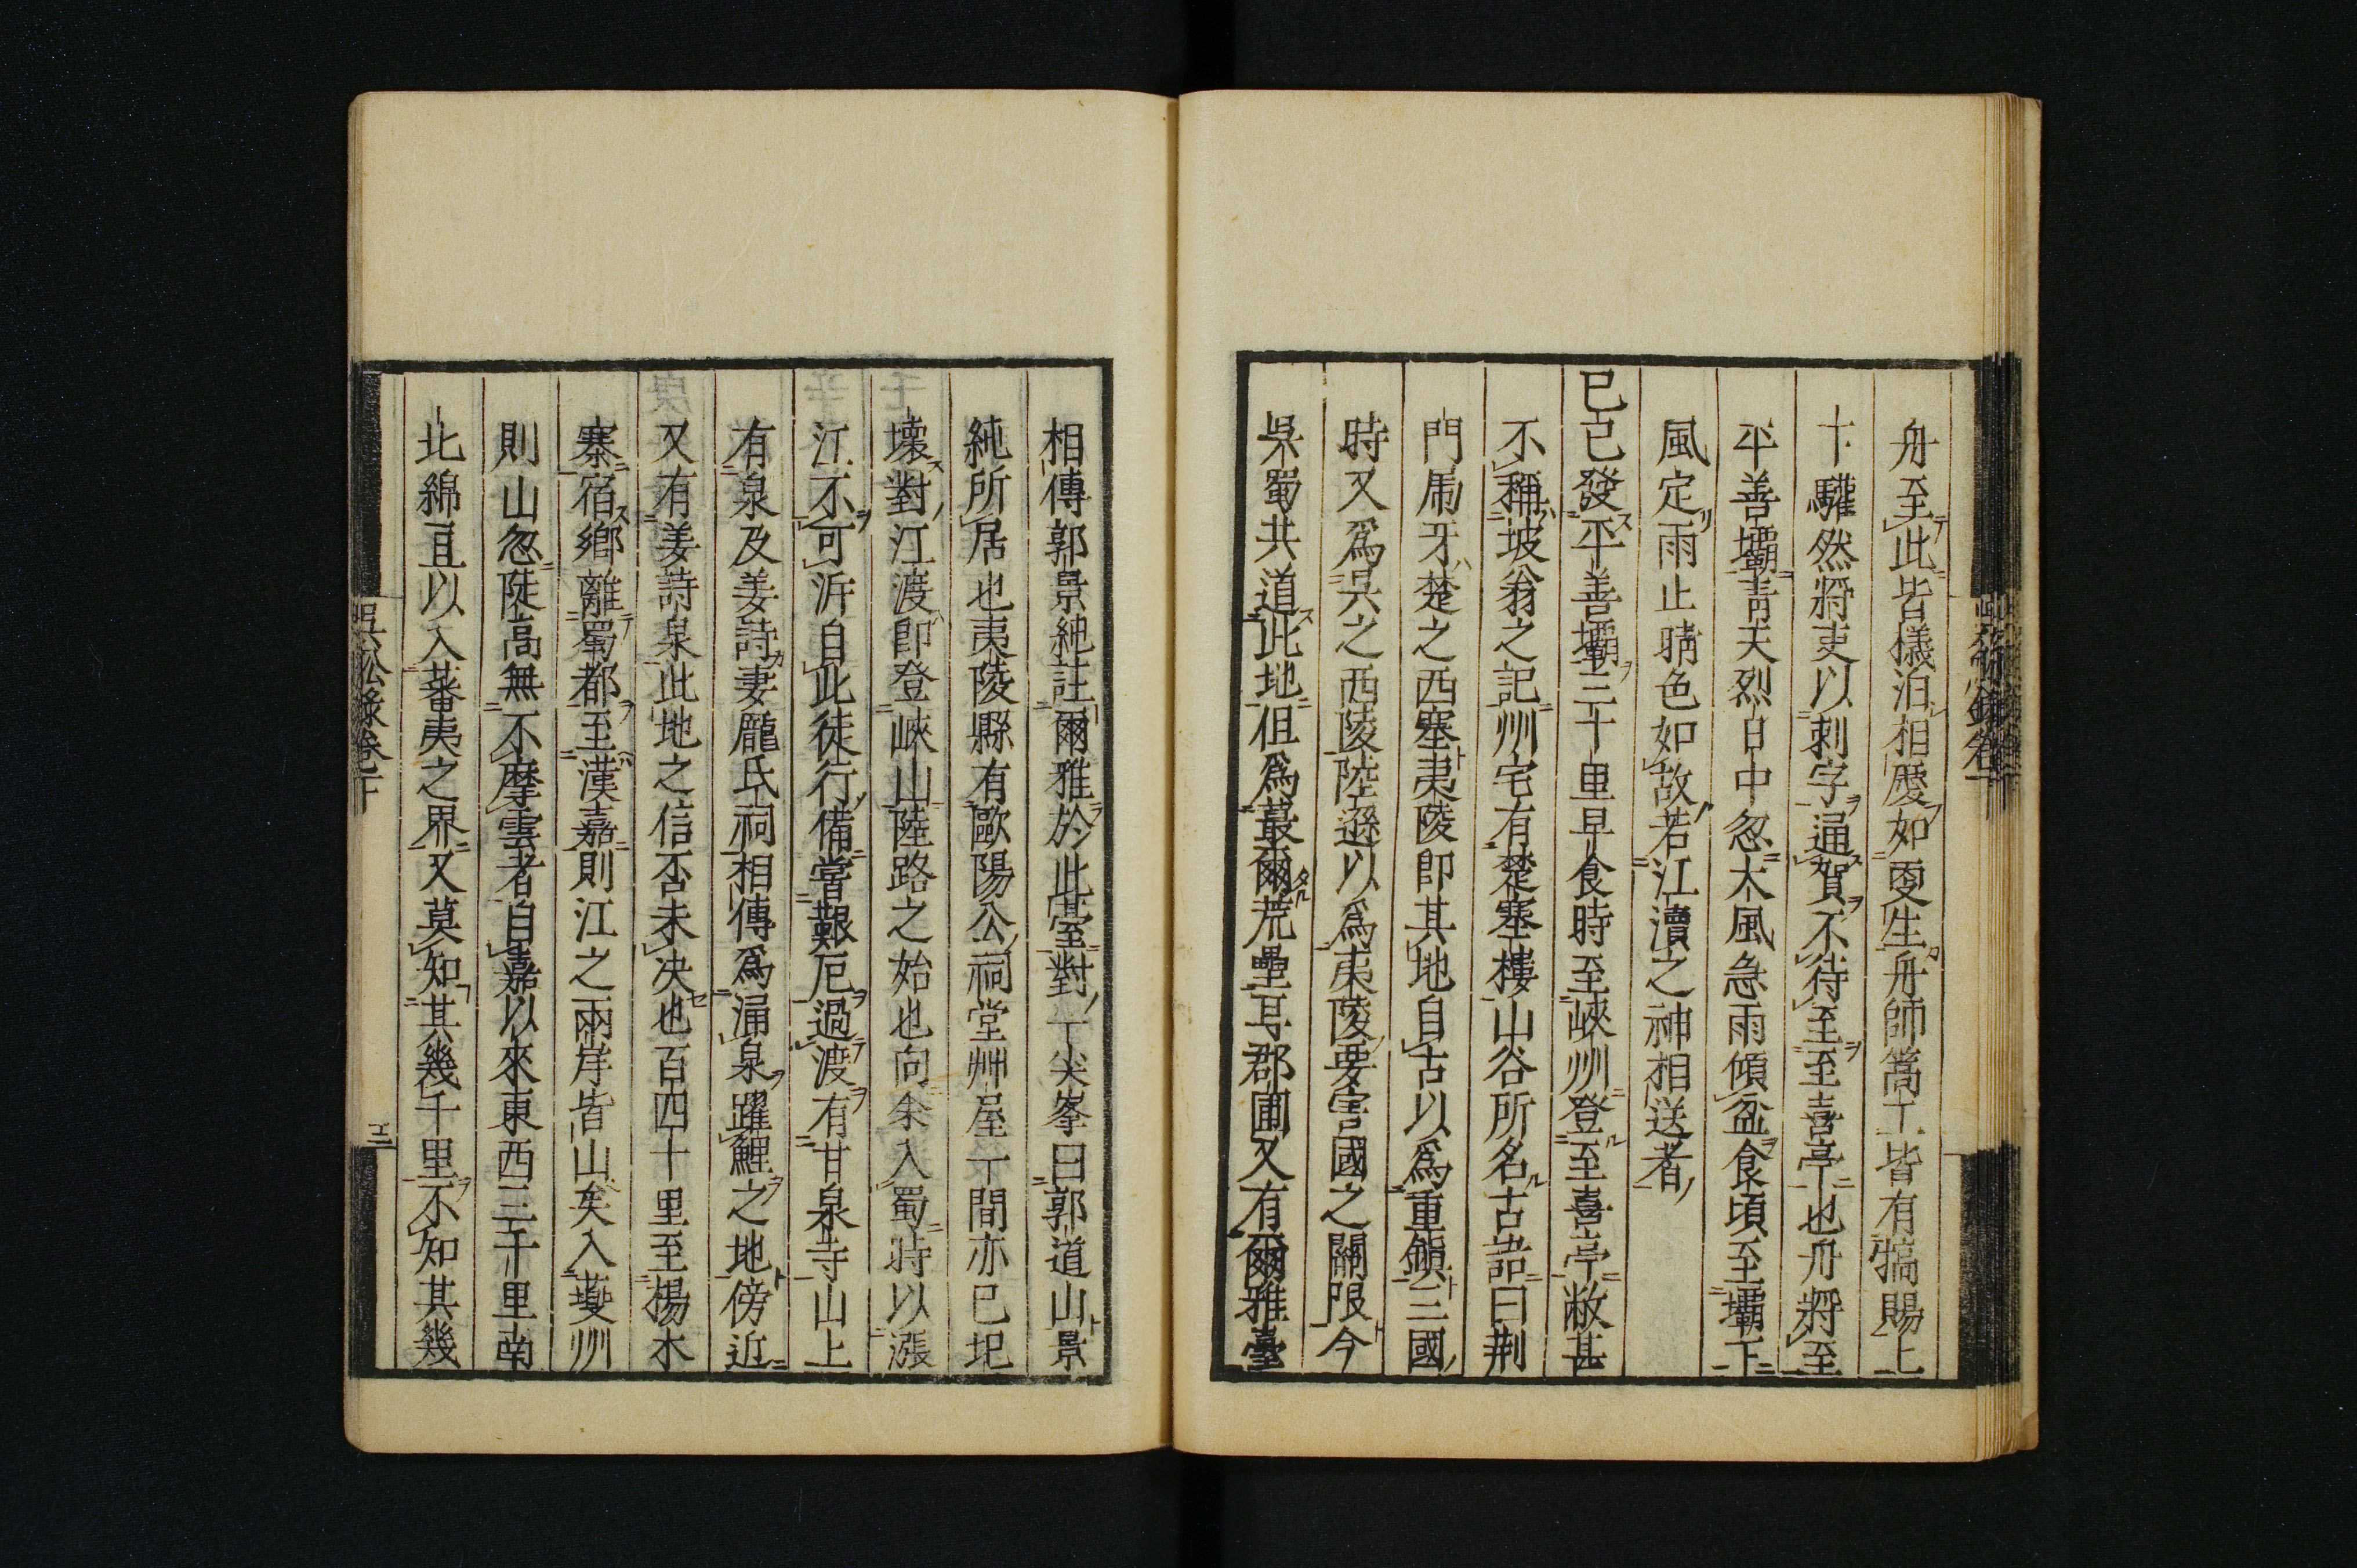 舟至此皆檥泊相慶如更生舟師篙工皆有犒賜上
十驩然將吏以刺字通賀不待至至喜亭也舟將至
平善壩青天烈日中忽大風急雨傾盆食頃至壩下
風定雨止晴色如故若江瀆之神相送者
巳己發平善壩三十里早食時至峽州登至喜亭敝甚
不稱坡翁之記州宅有楚塞樓山谷所名古語曰荆
門虎牙楚之西塞夷陵即其地自古以爲重鎭三國
時又爲吳之西陵陸遜以爲夷陵要害國之關限今
吳蜀共道此地但爲蕞爾荒壘耳郡圃又有爾雅臺
相傳郭景純註爾雅於此臺對一尖峯曰郭道山景
純所居也夷陵縣有歐陽公祠堂艸屋一間亦已圮
壞對江渡即登峽山陸路之始也向余入蜀時以漲
江不可泝自此徒行備嘗艱厄過渡有甘泉寺山上
有泉及姜詩妻龐氏祠相傳爲涌泉躍鯉之地傍近
又有姜詩泉此地之信否未决也百四十里至楊木
寨宿鄕離蜀都至漢嘉則江之兩岸皆山矣入夔州
則山忽陡高無不摩雲者自嘉以來東西三千里南
北綿亘以入蕃夷之界又莫知其幾千里不知其幾
吳船錄卷下